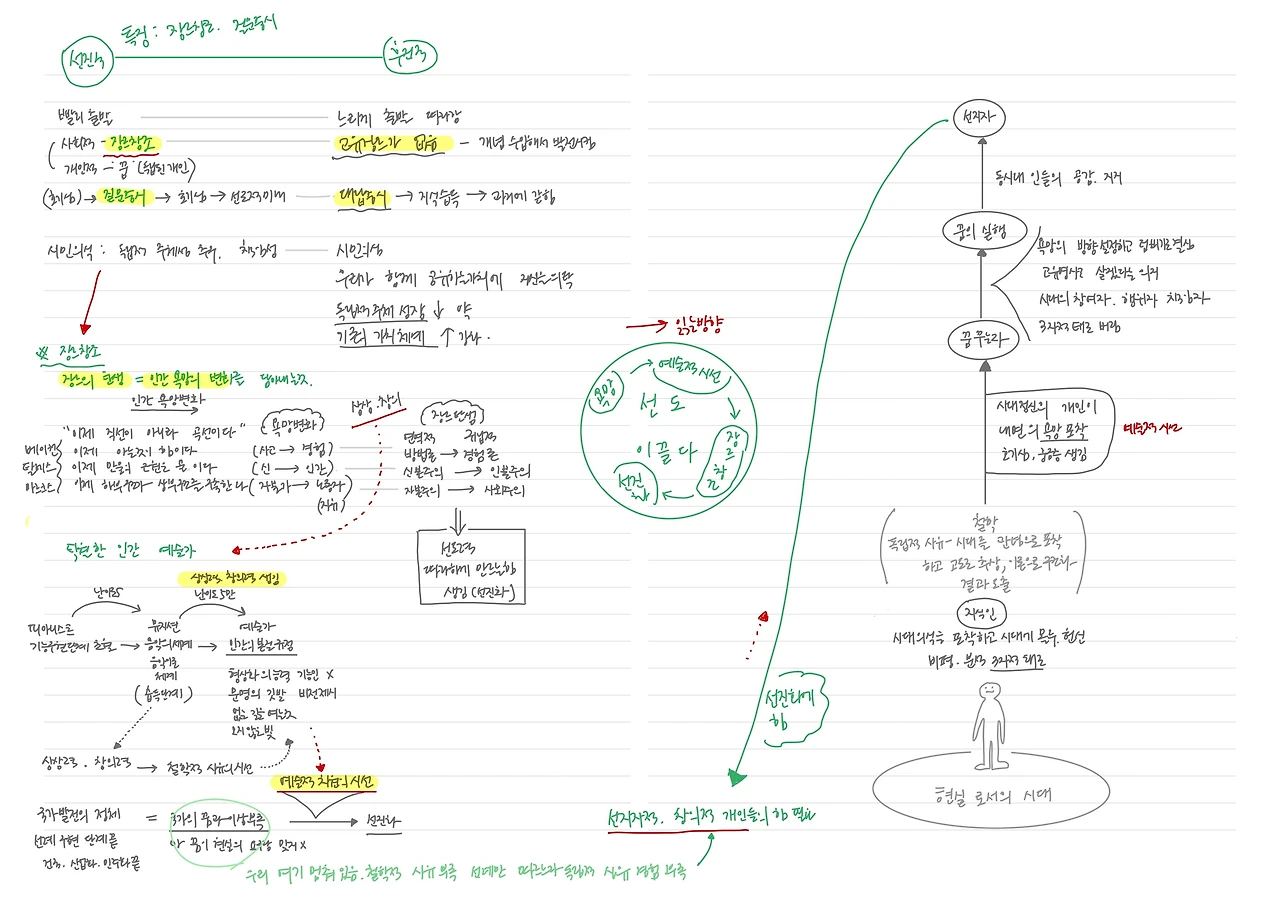 특징: 장르창조. 질문중시
선진국
후진국
빨리 출발
느리게 출발 따라감
사회적 - 장르창조
고유장르가 없음 - 개념 수입해서
개인적 - 꿈 (독립된 개인)
(호기심) → 질문중시 → 호기심 → 선도적 미래
대답중시 → 지식습득 → 과거에 갇힘
시민의식: 독립적 주체성 추구. 책임성
시민의식
우리가 함께 공유하는가치에
독립적주체 성장 ↓ 약
기존의 가치체계 ↑ 강화.
※ 장르창조
장르의 탄생 = 인간 욕망의 변화를 담아내는것.
인간 욕망변화
(욕망변화)
상상. 창의
장르탄생
"이제 직선이 아니라 곡선이다"
연역적 귀납적
베이컨 이제 아는것이 힘이다
(사고 → 경험)
방법론 → 경험론
탈레스 이제 만물의 근원은 물이다
(신 → 인간)
신본주의 → 인본주의
마르크스 이제 하부구조가 상부구조를
(자본가 → 노동자
(자유)
자본주의 → 사회주의
선도력
따라하게 만드는힘
생김 (선진화)
탁월한 인간 예술가
상상력, 창의력 생김
난이도5
난이도5만
피아니스트
기능구현단계
뮤지션
음악의세계
음악으로
체계
(습득단계)
예술가
인간의
기능인 X
운명의 깃발 비전제시
없는 길을 여는것
오지않은 빛
상상력. 창의력 → 철학적 사유의시선
예술적 차원의 시선
국가발전의 정체 = 국가의 꿈과 이상부족 → 선진화
선례 구현 단계끝
건국. 산업화. 민주화 끝
앞 꿈이 현실의 맞지 X
우리 여기 멈춰 있음. 철학적 사유 부족 선례만 따르느라 독립적 사유 경험 부족
→ 읽는방향
욕망
예술적 시선
장르창조
선진화
선도
이끌다
선진화에
힘
선지자적. 창의적 개인들의 힘 필요
선지자
동시대 인들의 공감. 지지
꿈의 실행
욕망의 방향 설정하고 덤벼들 결심
고유명사로 살겠다는 의지
시대의 참여자. 행위자 책임자
3자적 태도 버림
꿈꾸는자
시대정신의 개인이
내면의 욕망 포착
호기심, 궁금증 생김
예술적 사고
철학
독립적 사유 - 시대를 포착
하고 고도로 추상, 이론으로
결과 도출
지식인
시대의식을 포착하고 시대가
비평. 분석 3자적 태도
현실 로서의 시대